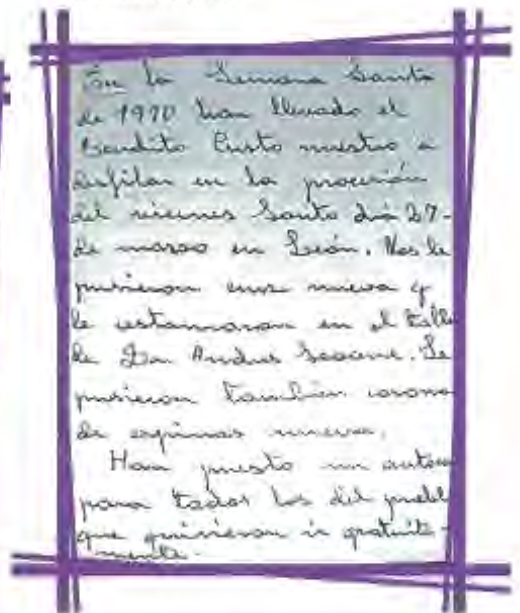 En la Semana Santa
de 1970 han llevado el
Bendito Cristo nuestro a
desfilar en la procesión
del viernes Santo día 27-
de marzo en León. Nos le
pusieron cruz nueva y
le restauraron en el talle
de Don Andres Seoane. Le
pusieron también corona
de espinas nueva.
Han puesto un autoca
para todos los del puebl
que quisieran ir gratuita-
mente.